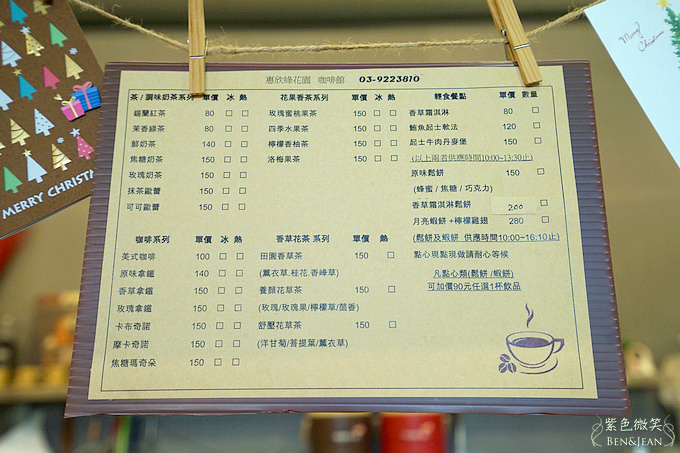 惠欣綠花園 咖啡館 03-9223810
茶/調味奶茶系列 單價 冰 熱
錫蘭紅茶 80 □ □
茉香綠茶 80 □ □
鮮奶茶 140 □ □
焦糖奶茶 150 □ □
玫瑰奶茶 150 □ □
抹茶歐蕾 150 □ □
可可歐蕾 150 □ □
花果香茶系列 單價 冰 熱
玫瑰蜜桃果茶 150 □ □
四季水果茶 150 □ □
檸檬香柚茶 150 □ □
洛梅果茶 150 □ □
輕食餐點 單價 數量
香草霜淇淋 80 □
鮪魚起士軟法 120 □
起士牛肉丹麥堡 150 □
(以上兩者供應時間10:00~13:30止)
原味鬆餅 150 □
(蜂蜜 / 焦糖 / 巧克力)
香草霜淇淋鬆餅 200 □
月亮蝦餅+檸檬雞翅 280 □
(鬆餅及蝦餅 供應時間10:00~16:10止)
點心現點現做請耐心等候
凡點心類(鬆餅/蝦餅)
可加價90元任選1杯飲品
咖啡系列 單價 冰 熱
美式咖啡 100 □ □
原味拿鐵 140 □ □
香草拿鐵 150 □ □
玫瑰拿鐵 150 □ □
卡布奇諾 150 □ □
摩卡奇諾 150 □ □
焦糖瑪奇朵 150 □ □
香草花茶 系列 單價 熱
田園香草茶 150 □
(薰衣草.桂花.香蜂草)
養顏花草茶 150 □
(玫瑰/玫瑰果/檸檬草/茴香)
舒壓花草茶 150 □
(洋甘菊/菩提葉/薰衣草)
MERRY CHRISTM
Merry Christmas
紫色微笑
BEN&JEAN